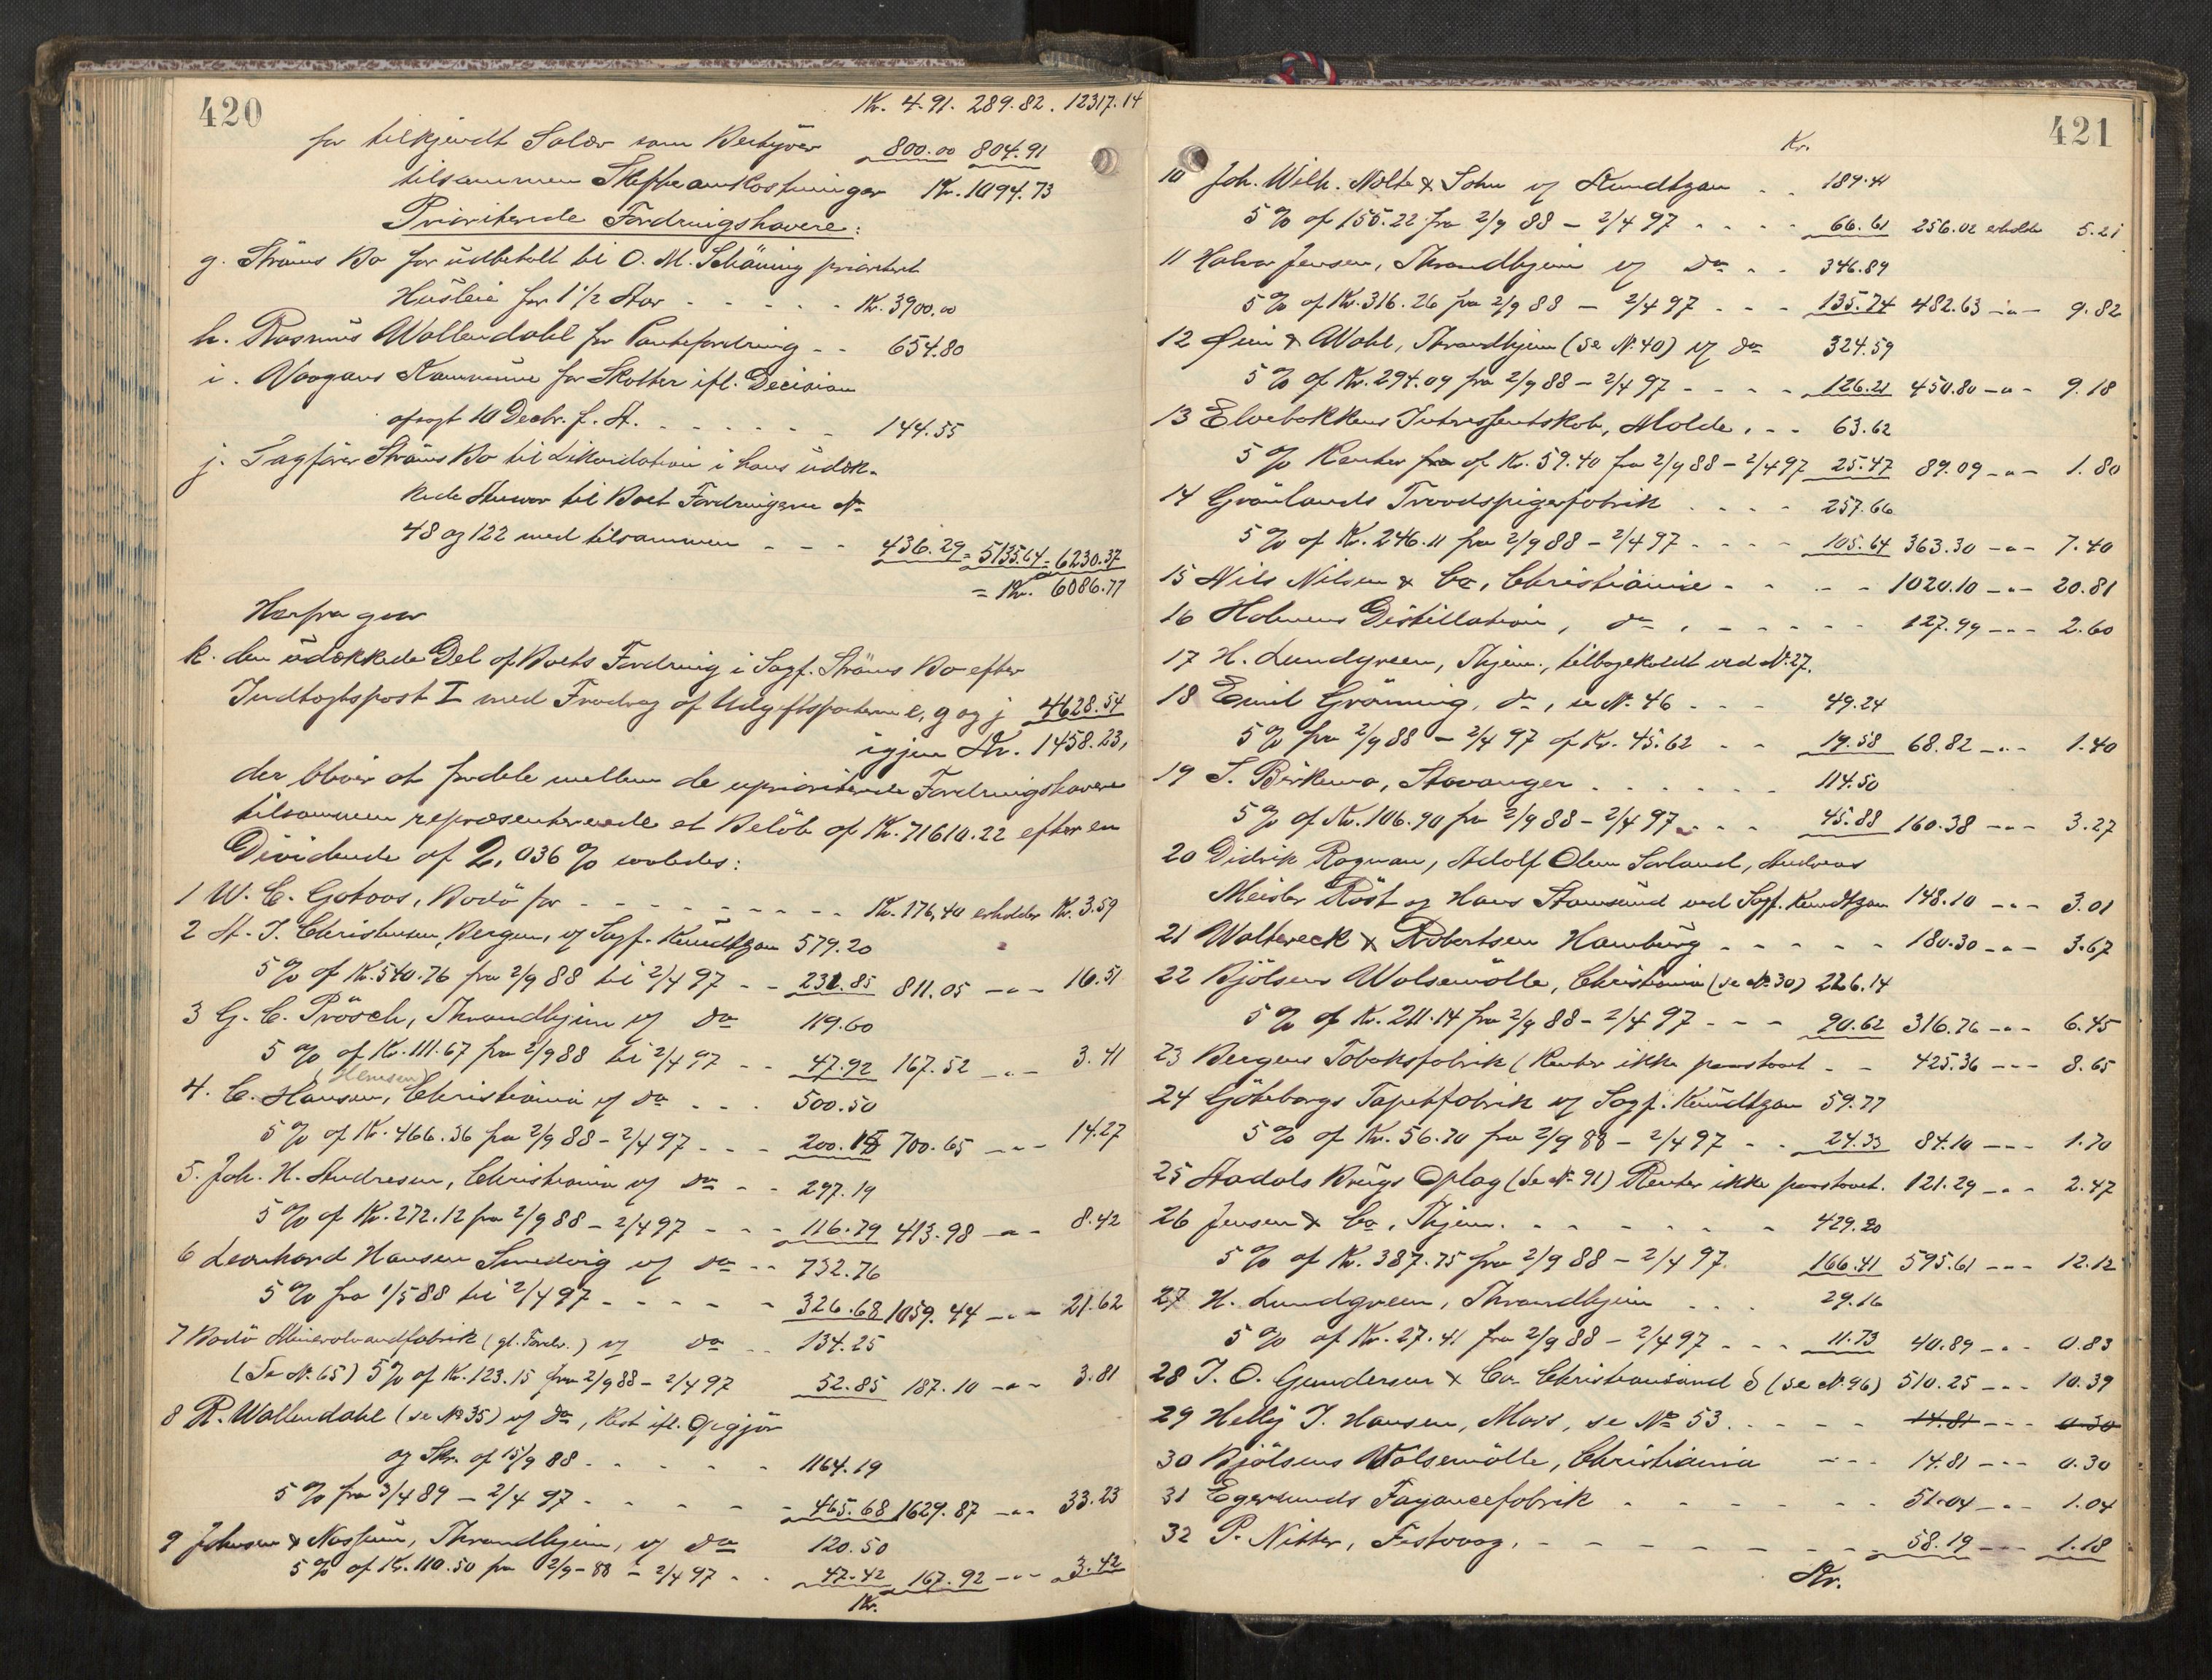 420
Kr. 4.91. 289.82. 12317.14
for tilkjendt Salær som Bestyrer 800.00 804.91
tilsammen Skifteomkostninger Kr. 1094.73
Prioriterede Fordringshavere:
g. Ströms Bo for udbetalt til O. M. Schöning prioriteret
Husleie for 1 1/2 Aar - - - - - Kr. 3900.00
h. Rasmus Wollendahl for Pantefordring - - 654.80
i. Vaagans Kommune for Skatter ifl. Decision
afsagt 10 Decbr. f. A. - - - - - - - 144.55
j. Sagfører Ströms Bo til Likvidation i hans udæk-
kede Ansvar til Boet Fordringerne No
48 og 122 med tilsammen - - - 436.29 = 5135.64 = 6230.37
= Kr. 6086.77
Herfra gaar
k. den udækkede Del af Boets Fordring i Sagf. Ströms Bo efter
Indtægtspost I med Fradrag af Udgiftsposterne e, g og j 4628.54
igjen Kr. 1458.23,
der bliver at fordele mellem de uprioriterede Fordringshavere
tilsammen repræsenterende et Beløb af Kr. 71610.22 efter en
Dividende af 2,036 % saaledes:
1 W. C. Gotaas, Bodö for - - - - - - - - - Kr. 176,40 erholder Kr. 3.59
2 A. J. Christensen, Bergen, v/ Sagf. Knudtzon 579.20
5 % af Kr. 540.76 fra 2/9 88 til 2/4 97 - - 231.85 811.05 -"- 16.51
3 G. C. Prösch, Throndhjem v/ do 119.60
5 % af Kr. 111.67 fra 2/9 88 til 2/4 97 - - 47.92 167.52 -"- 3.41
(Hemsen)
4. C. Hansen, Christiania v/ do - - - 500.50
5 % af Kr. 466.36 fra 2/9 88 - 2/4 97 - - - 200.15 700.65 -"- 14.27
5. Joh. H. Andresen, Christiania v/ do - - 297.19
5 % af Kr. 272.12 fra 2/9 88 - 2/4 97 - - - 116.79 413.98 -"- 8.42
6 Leonhard Hansen Sundvig v/ do - - 732.76
5 % fra 1/5 88 til 2/4 97 - - - - - 326.68 1059.44 -"- 21.62
7 Bodö Mineralvandfabrik (gl. Fordr.) v/ do - - 134.25
(Se No 65) 5 % af Kr. 123.15 fra 2/9 88 - 2/4 97 52.85 187.10 -"- 3.81
8 R. Wollendahl (se No 35) v/ do, Rest ifl. Opgjör
og Skr. af 15/9 88 - - - - - - 1164.19
5 % fra 3/4 89 - 2/4 97 - - - - - - 465.68 1629.87 -"- 33.23
9 Johnsen & Nossum, Throndhjem, v/ do 120.50
5 % af Kr. 110.50 fra 2/9 - 88 - 2/4 97 - - 47.42 167.92 -"- 3.42
Kr.
421
Kr.
10 Joh. Wilh. Nolte & Sohn v/ Knudtzon - - 189.41
5 % af 155.22 fra 2/9 88 - 2/4 97 - - - - 66.61 256.02 erholder 5.21
11 Halvor Jensen, Throndhjem v/ do - - 346.89
5 % af Kr. 316.26 fra 2/9 88 - 2/4 97 - - - 135.74 482.63 -"- 9.82
12 Øien & Wahl, Throndhjem (se No 40) v/ do 324.59
5 % af Kr. 294.09 fra 2/9 88 - 2/4 97 - - - - 126.21 450.80 -"- 9.18
13 Elvebakkens Interessentskab, Molde, - - 63.62
5 % Renter fra af Kr. 59.40 fra 2/9 88 - 2/4 97 25.47 89.09 -"- 1.80
14 Grönlands Traadspigerfabrik - - - - 257.66
5 % af Kr. 246.11 fra 2/9 88 - 2/4 97 - - - - 105.64 363.30 -"- 7.40
15 Nils Nilsen & Co, Christiania - - - - - 1020.10 -"- 20.81
16 Holmens Distillation, do, - - - - - - 127.99 -"- 2.60
17 H. Lundgreen, Thjem., tilbagekaldt ved No 27.
18 Emil Grönning, do, se No 46 - - - 49.24
5 % fra 2/9 88 - 2/4 97 af Kr. 45.62 - - 19.58 68.82 -"- 1.40
19 S. Birkemo, Stavanger - - - - - - 114.50
5 % af Kr. 106.90 fra 2/9 88 - 2/4 97 - - - 45.88 160.38 -"- 3.27
20 Didrik Rognan, Adolf Olsen Sorland, Andreas
Meisler Röst og Hans Stamsund ved Sagf. Knudtzon 148.10 -"- 3.01
21 Waltereck & Robertsen Hamburg - - - - - 180.30 -"- 3.67
22 Bjölsens Valsemölle, Christiania (se No 30) 226.14
5 % af Kr. 211.14 fra 2/9 88 - 2/4 97 - - - 90.62 316.76 -"- 6.45
23 Bergens Tobaksfabrik (Renter ikke paastaaet - - 425.36 -"- 8.65
24 Göteborgs Tapetfabrik v/ Sagf. Knudtzon 59.77
5 % af Kr. 56.70 fra 2/9 88 - 2/4 97 - - 24.33 84.10 -"- 1.70
25 Aadals Brugs Oplag (Se No 91) Renter ikke paastaaet. 121.29 -"- 2.47
26 Jensen & Co, Thjem. - - - - - - - 429.20
5 % af Kr. 387.75 fra 2/9 88 - 2/4 97. 166.41 595.61 -"- 12.12
27 H. Lundgreen, Throndhjem - - - 29.16
5 % af Kr. 27.41 fra 2/9 88 - 2/4 97 - - - 11.73 40.89 -"- 0.83
28 T. O. Gundersen & Co. Christiansand S (se No 96) 510.25 -"- 10.39
29 Helly J. Hansen, Moss, se No 53 - - - - - 14.81 -"- 0.30
30 Bjölsens Valsemölle, Christiania - - - 14.81 -"- 0.30
31 Egersunds Fayancefabrik - - - - - - - 51.04 -"- 1.04
32 P. Nitter, Festvaag, - - - - - - - - 58.19 -"- 1.18
Kr.